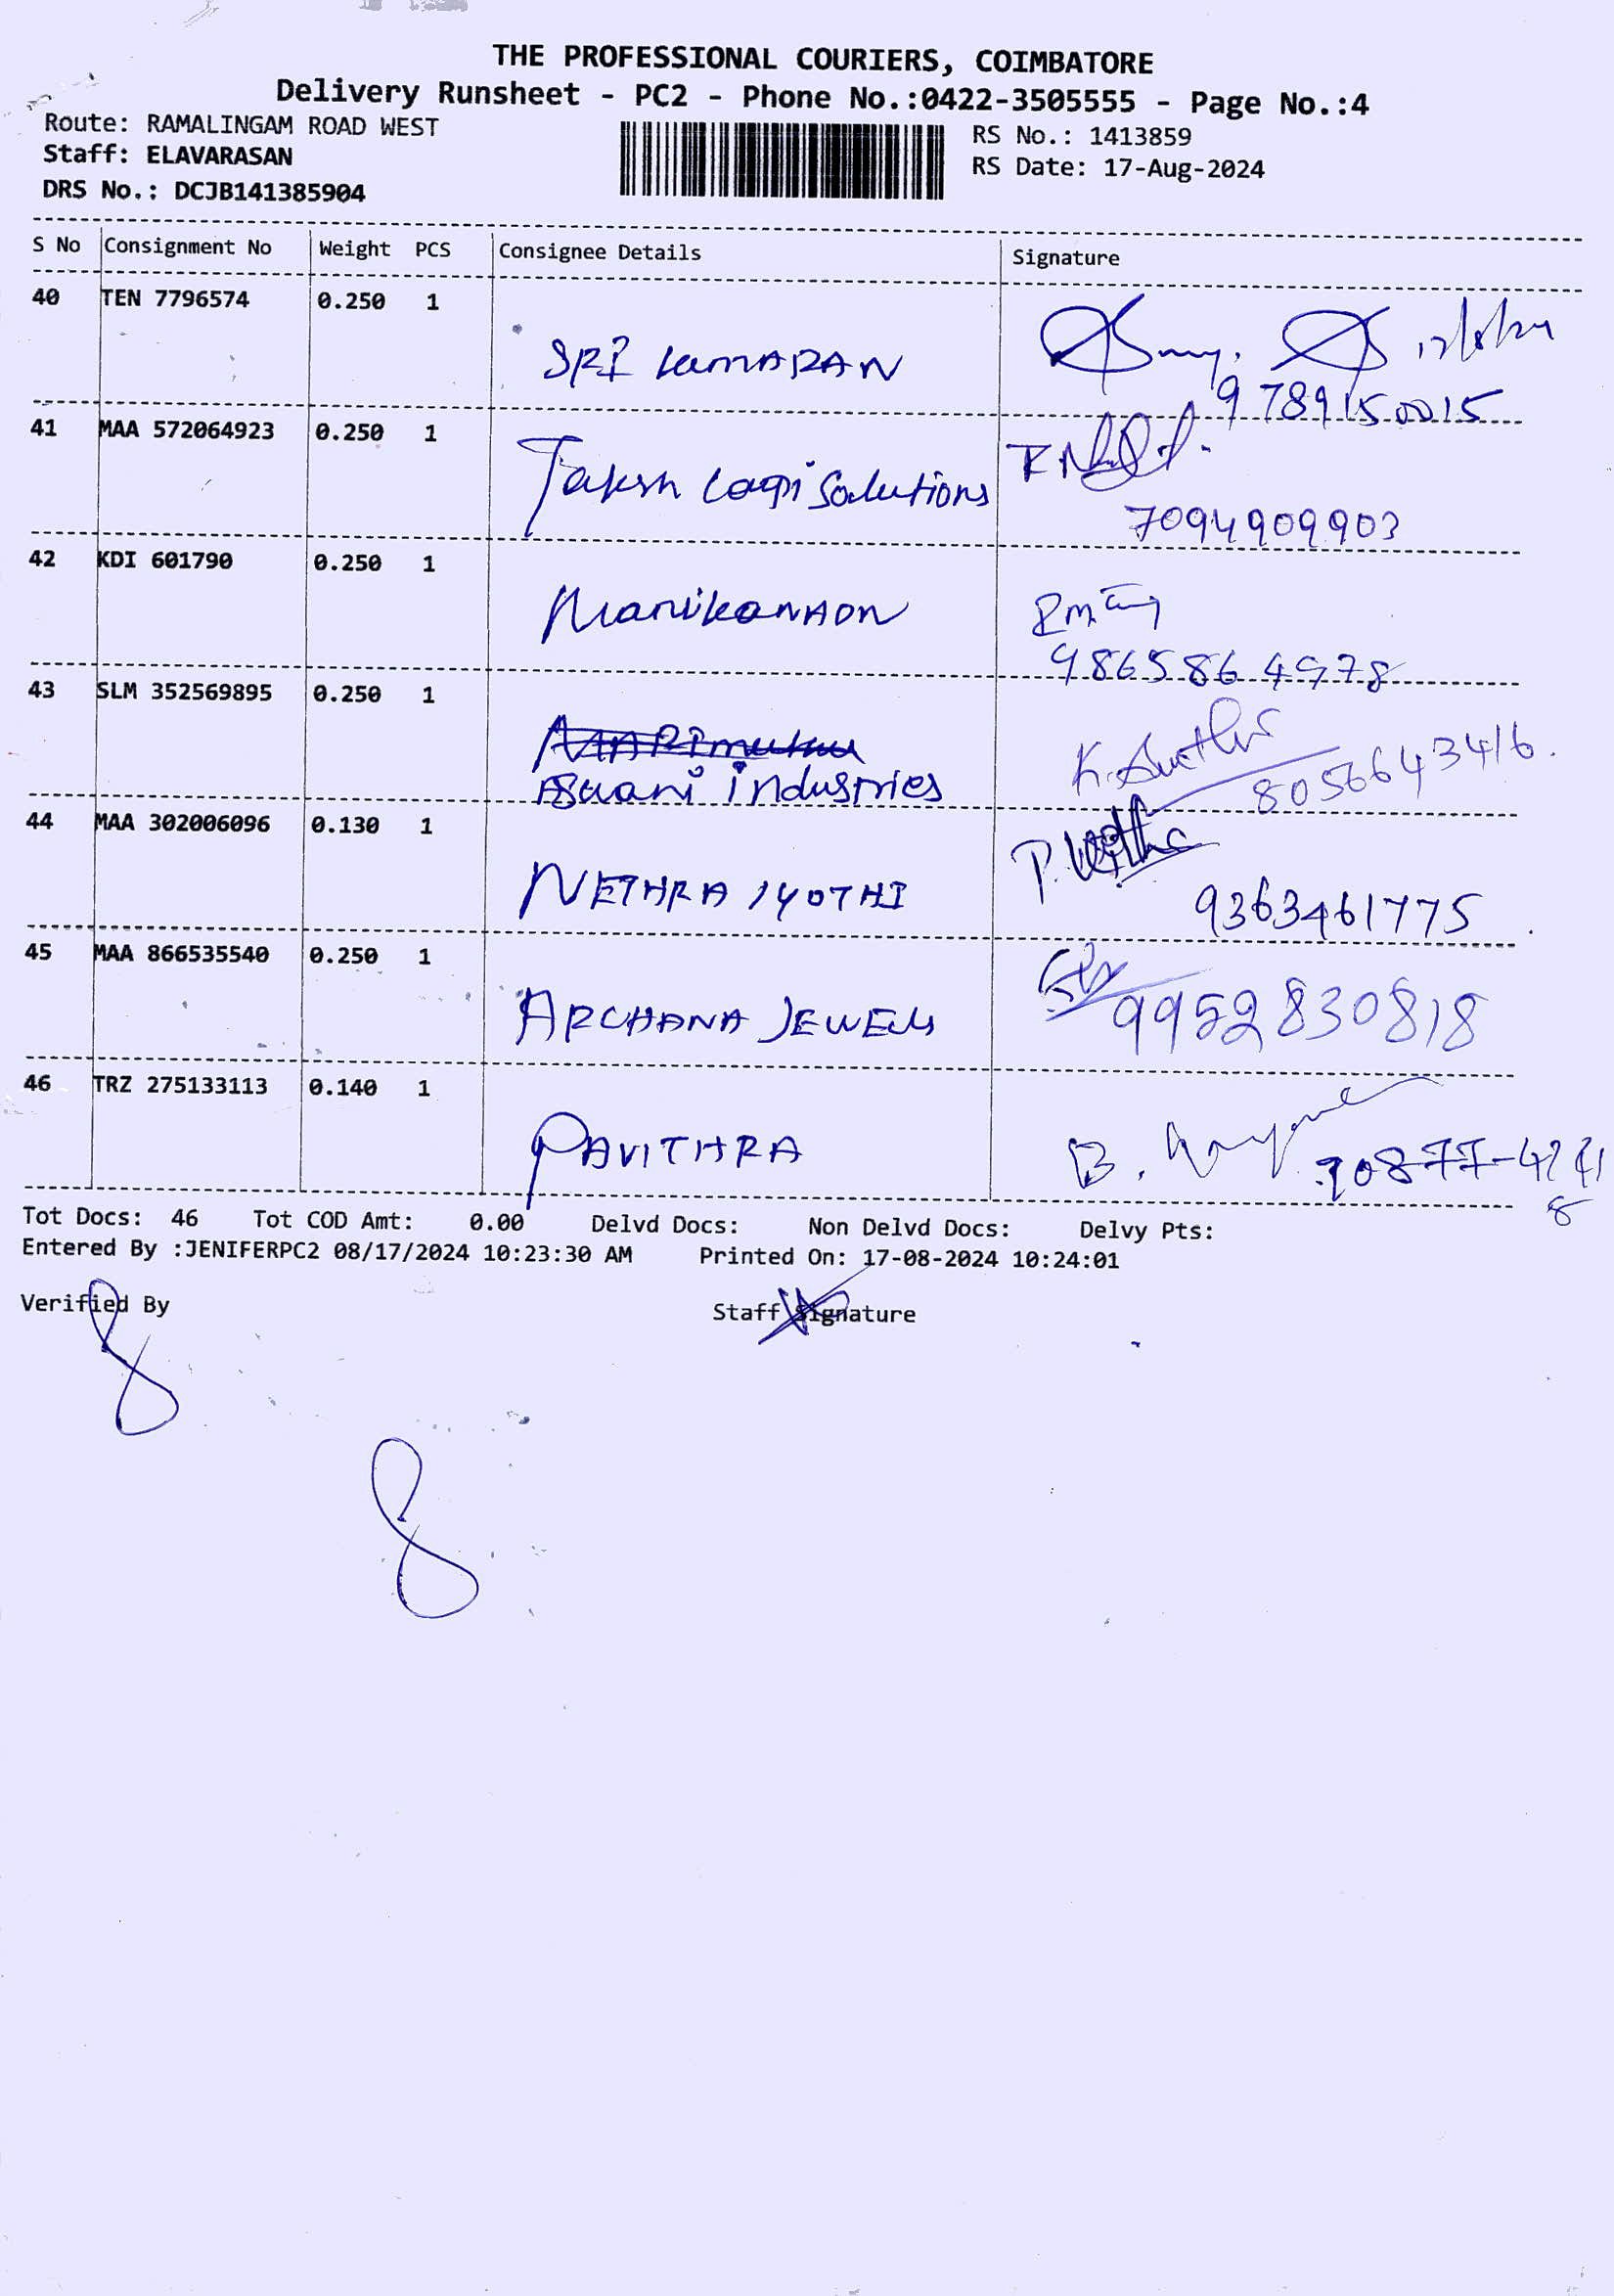 THE PROFESSIONAL COURIERS, COIMBATORE
Delivery Runsheet - PC2 - Phone No.:0422-3505555 - Page No.:4
Route: RAMALINGAM ROAD WEST
Staff: ELAVARASAN
DRS No.: DCJB141385904
RS No.: 1413859
RS Date: 17-Aug-2024
S No Consignment No Weight PCS Consignee Details Signature
40 TEN 7796574 0.250 1
SRI KUMARAN
9789150015
41 MAA 572064923 0.250 1
Solutions
7094909903
42 KDI 601790 0.250 1
Manikandan
9865864978
43 SLM 352569895 0.250 1
Industries
8056643416.
44 MAA 302006096 0.130 1
NETHRA JYOTHI
9363461775
45 MAA 866535540 0.250 1
ARCHANA JEWELS
9952830818
46 TRZ 275133113 0.140 1
PAVITHRA
Tot Docs: 46 Tot COD Amt: 0.00 Delvd Docs: Non Delvd Docs: Delvy Pts:
Entered By :JENIFERPC2 08/17/2024 10:23:30 AM Printed On: 17-08-2024 10:24:01
Verified By Staff Signature